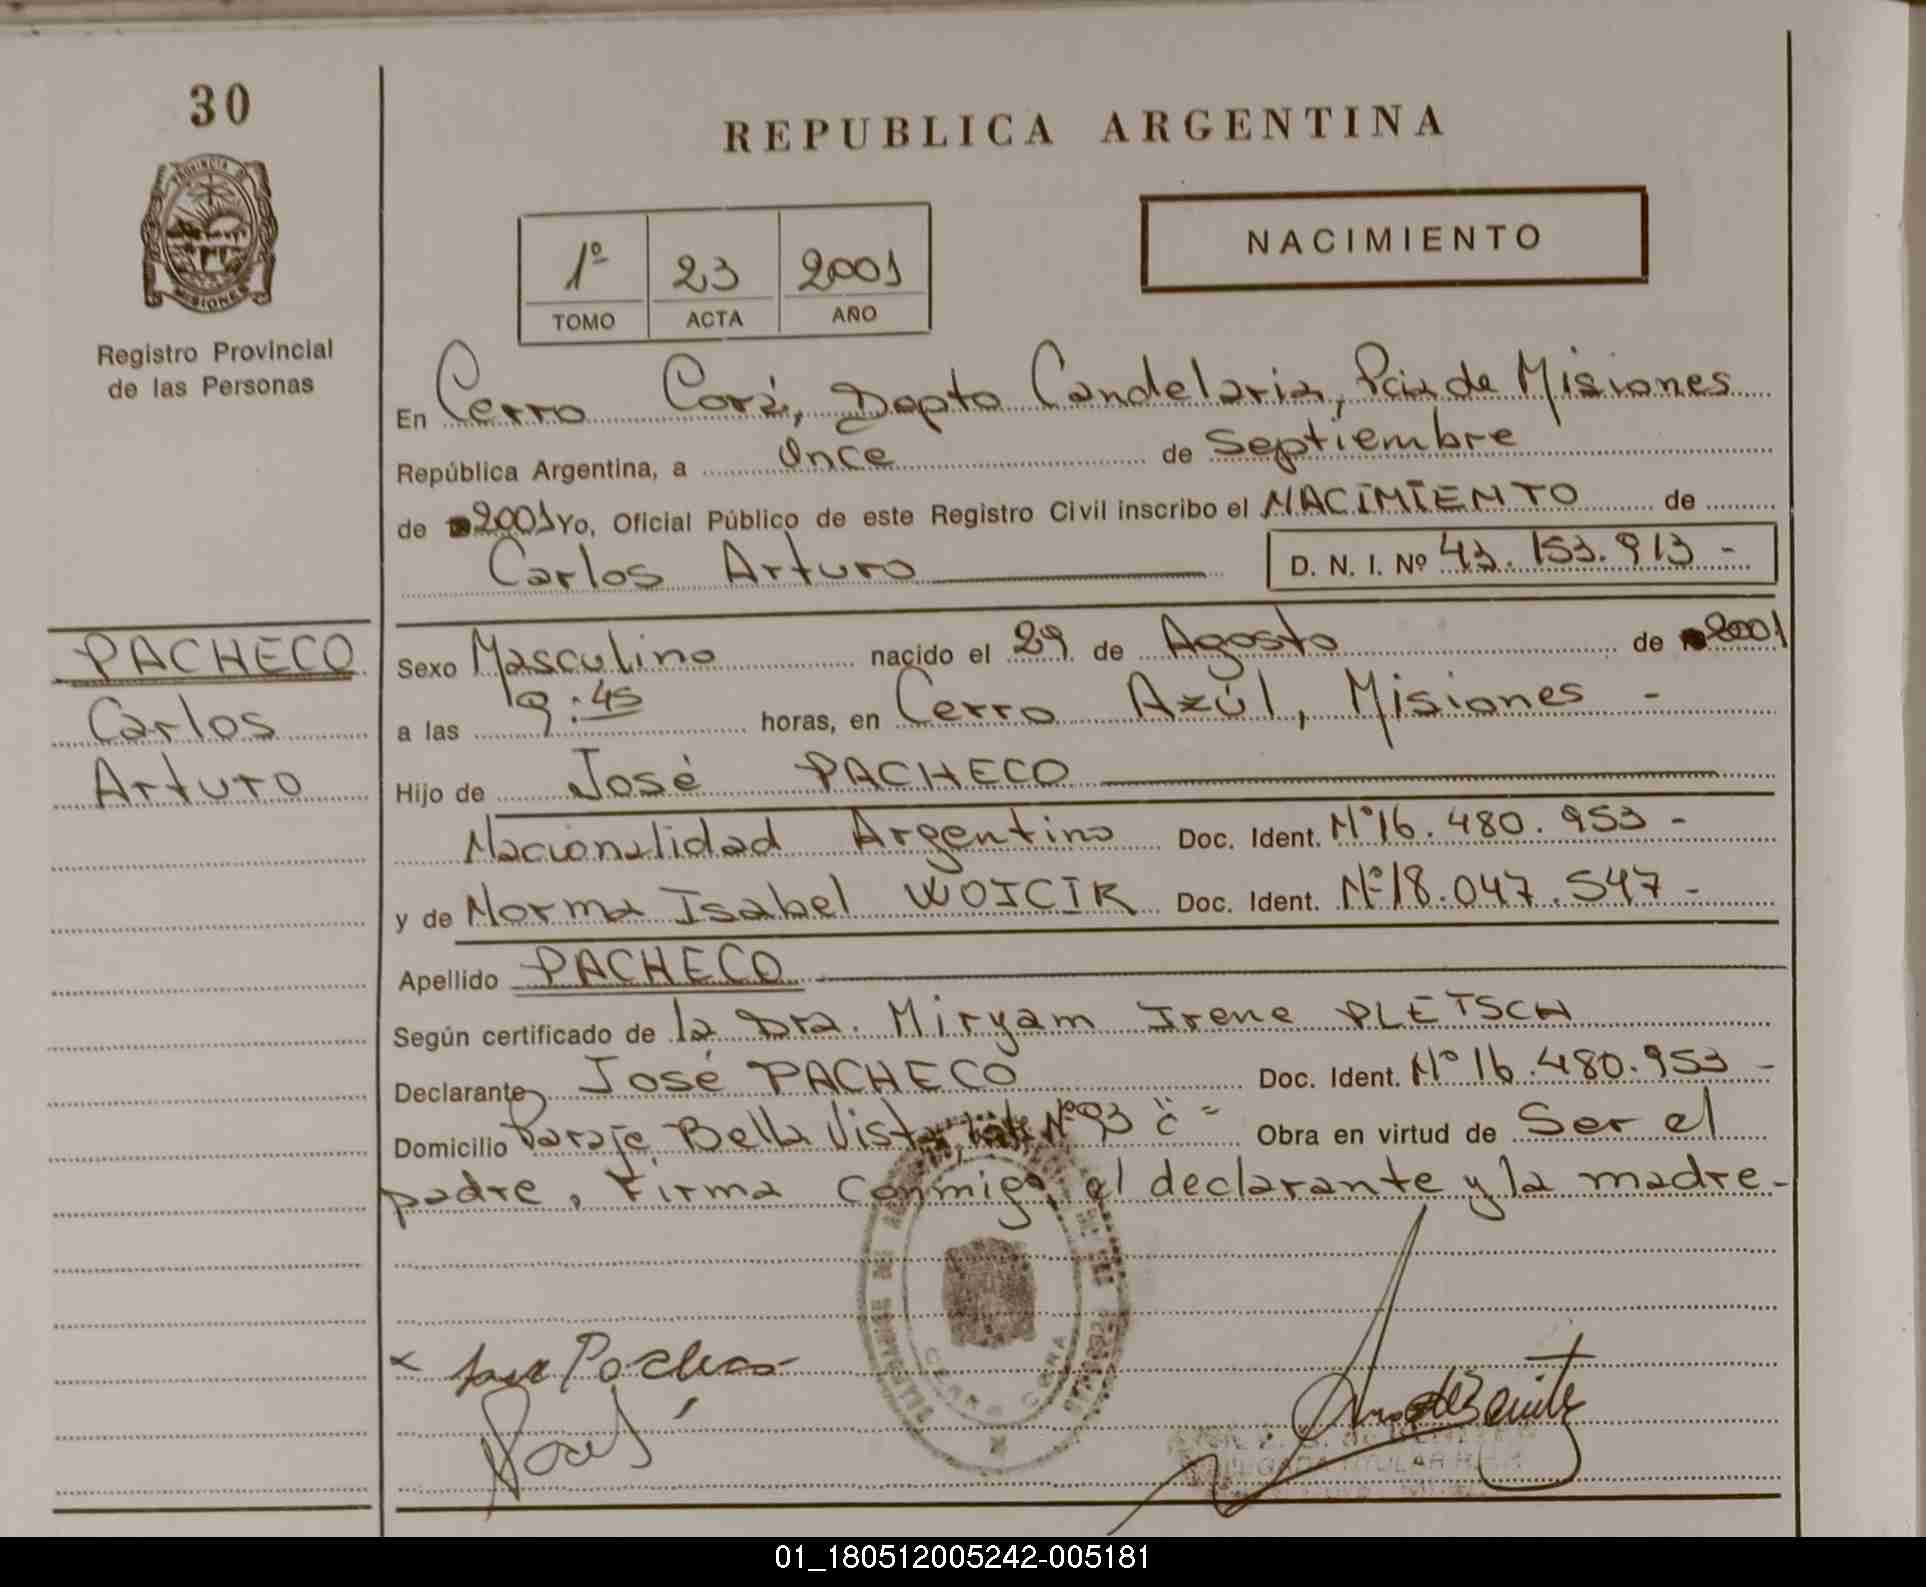 30
REPUBLICA ARGENTINA
PROVINCIA DE
MISIONES
Registro Provincial
de las Personas
1º 23 2001
TOMO ACTA AÑO
NACIMIENTO
En Cerro Corá, Depto Candelaria, Pcia de Misiones
República Argentina, a Once de Septiembre
de 2001 Yo, Oficial Público de este Registro Civil inscribo el NACIMIENTO de
Carlos Arturo D. N. I. Nº 43.153.913 -
PACHECO
Carlos
Arturo
Sexo Masculino nacido el 29 de Agosto de 2001
a las 9:45 horas, en Cerro Azúl, Misiones -
Hijo de José PACHECO
Nacionalidad Argentino Doc. Ident. Nº 16.480.953 -
y de Norma Isabel WOJCIK Doc. Ident. Nº 18.047.547 -
Apellido PACHECO
Según certificado de la Dra. Miryam Irene PLETSCH
Declarante José PACHECO Doc. Ident. Nº 16.480.953 -
Domicilio Paraje Bella Vista, lote Nº 93 "c" - Obra en virtud de Ser el
padre, Firma Conmigo, el declarante y la madre -
CERRO CORA
x Jose Pacheco
TITULAR
01_180512005242-005181